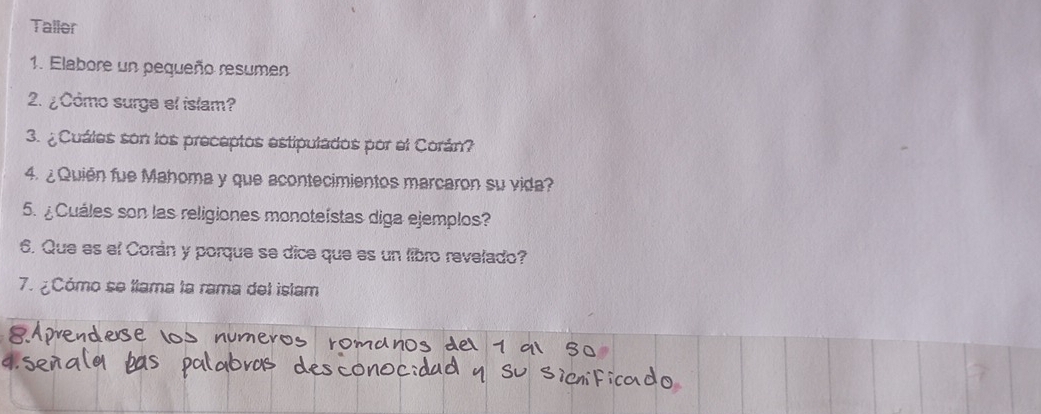 Taller
1. Elabore un pequeño resumen
2. ¿Cómo surge el islam?
3. ¿Cuáles son los preceptos estipulados por el Corán?
4. ¿Quién fue Mahoma y que acontecimientos marcaron su vida?
5. ¿Cuáles son las religiones monoteístas diga ejemplos?
6. Que es el Corán y porque se dice que es un libro revelado?
7. ¿Cómo se llama la rama del islam
8. Aprenderse los numeros romanos del 1 al 50
9. señala las palabras desconocidad y su sicnificado